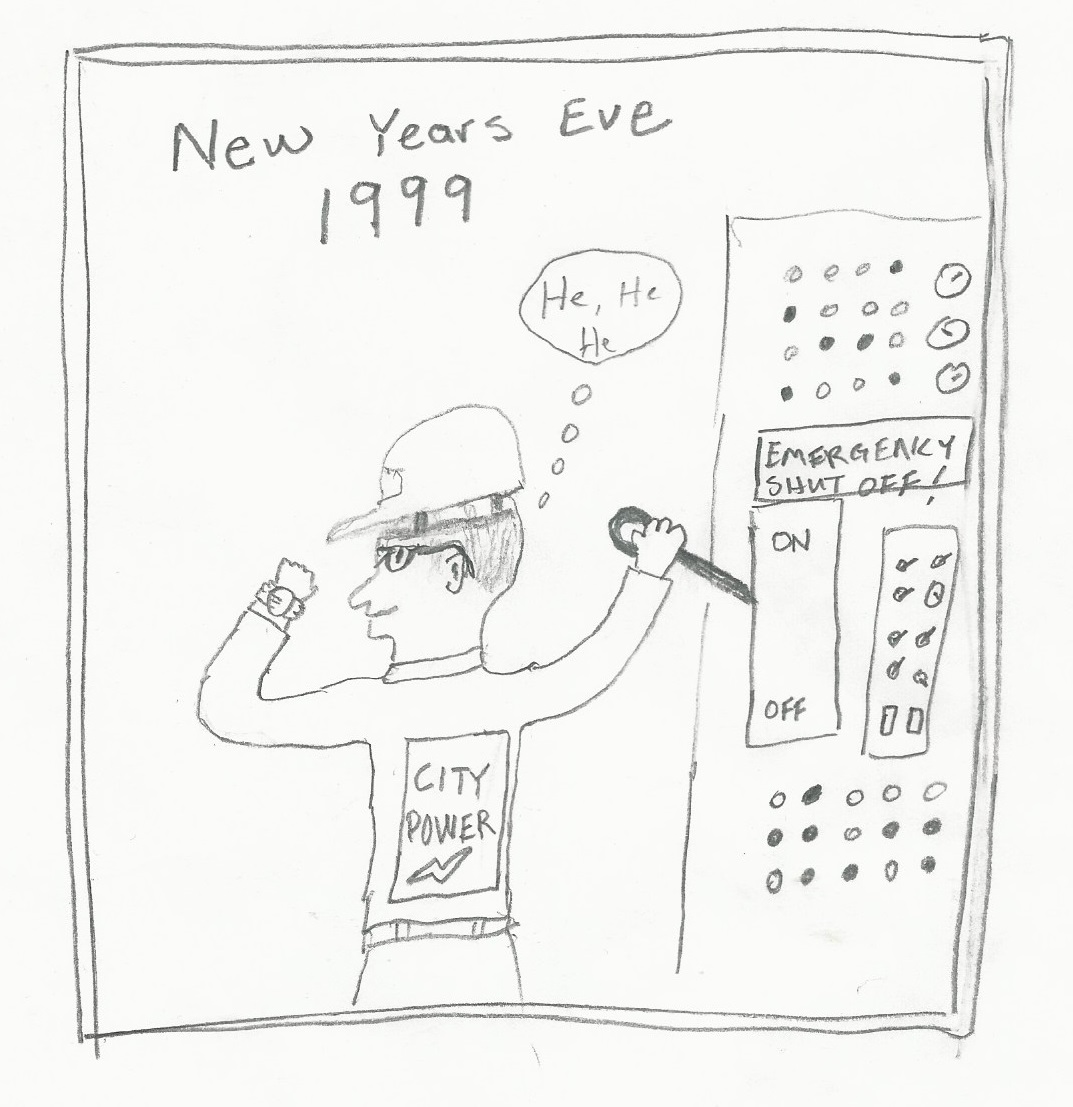 New Years Eve
1999
He, He
He
EMERGENCY
SHUT OFF!
ON
OFF
CITY
POWER